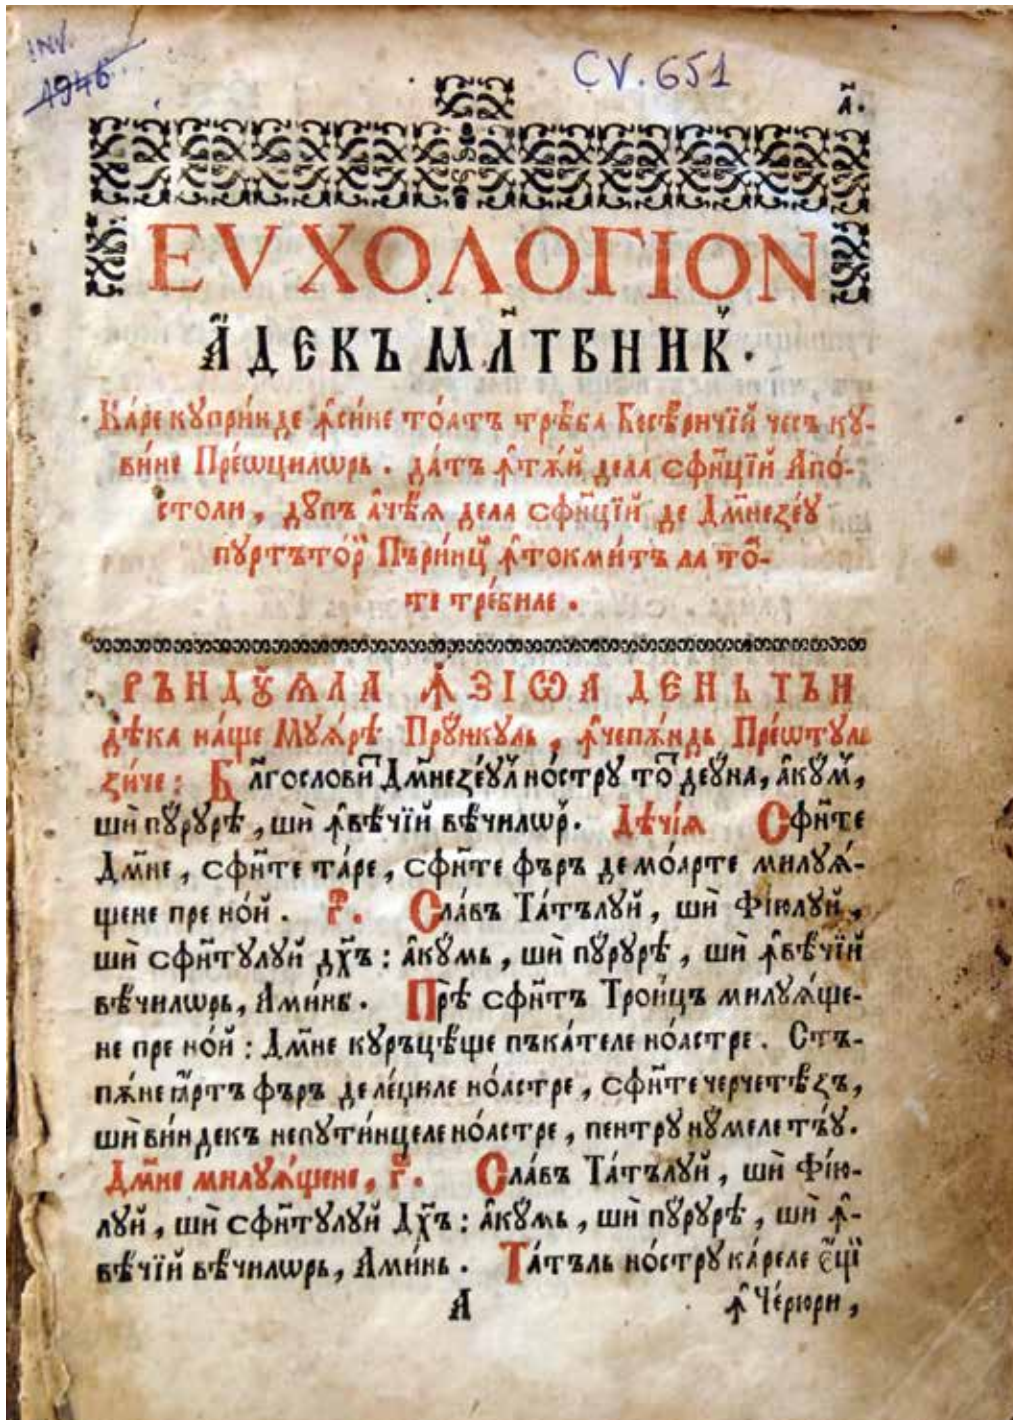 INV.
1946
CV. 651
а҃.
ΕΥΧΟΛΟΓΙΟΝ
А҆ДЕКЪ МЛ҃ТВНИК.
Ка́ре купри́нде ꙟсине то́атъ трѣ́ба Бесѣ́ричїй чесъ ку-
ви́не Прео́ѡцилѡрь. да́тъ ꙟтѫ́й дела сфи҃нцїй Апо́-
столи, дꙋпъ а҆чѣ́ѧ дела сфи҃нцїй де Дм҃незе́у
пуртъто́рⷭ҇ Пъри́нцⷭ҇ ꙟтокми́тъ ла то́-
те тре́биле.
РЪНДꙊꙖЛА Ꙟ ЗІѠА ДЕНЬТЪН
дѣка на́ще Мує́рѣ Прꙋ́нкуль, ꙟчепѫ́ндь Прео́ѡтуль
зи́че: Бл҃гослови́т Дм҃незе́ул но́стру то́т деꙋ́на, а҆кꙋ́м,
шѝ пꙋ́рурѣ, шѝ ꙟвѣ́чїй вѣ́чилѡр. Дѣ́чїѧ Сфи҃нте
Дм҃не, сфи҃нте та́ре, сфи҃нте фъръ де мо́арте милуѧ́-
щене пре но́й. г҃. Сла́въ Та́тълуй, шѝ Фі́юлуй,
шѝ сфи҃нтулуй дх҃ъ: а҆кꙋ́мь, шѝ пꙋ́рурѣ, шѝ ꙟвѣ́чїй
вѣ́чилѡрь, Ами́нь. Прѣ́ сфи҃нтъ Трои́цъ милуѧ́ще-
не пре но́й: Дм҃не куръцѣ́ще пъка́теле но́астре. Стъ-
пѫ́не ꙗ҆́ртъ фъръ деле́циле но́астре, сфи҃нте черчетѣ́зъ,
шѝ ви́ндекъ непути́нцеле но́астре, пентру нꙋ́меле тъ́у.
Дм҃не милуѧ́щене, г҃. Сла́въ Та́тълуй, шѝ Фі́ю-
луй, шѝ сфи҃нтулуй Дх҃ъ: а҆кꙋ́мь, шѝ пꙋ́рурѣ, шѝ ꙟ-
вѣ́чїй вѣ́чилѡрь, Ами́нь. Та́тъль но́стру ка́реле є҆́щй
А ꙟ Че́рюри,